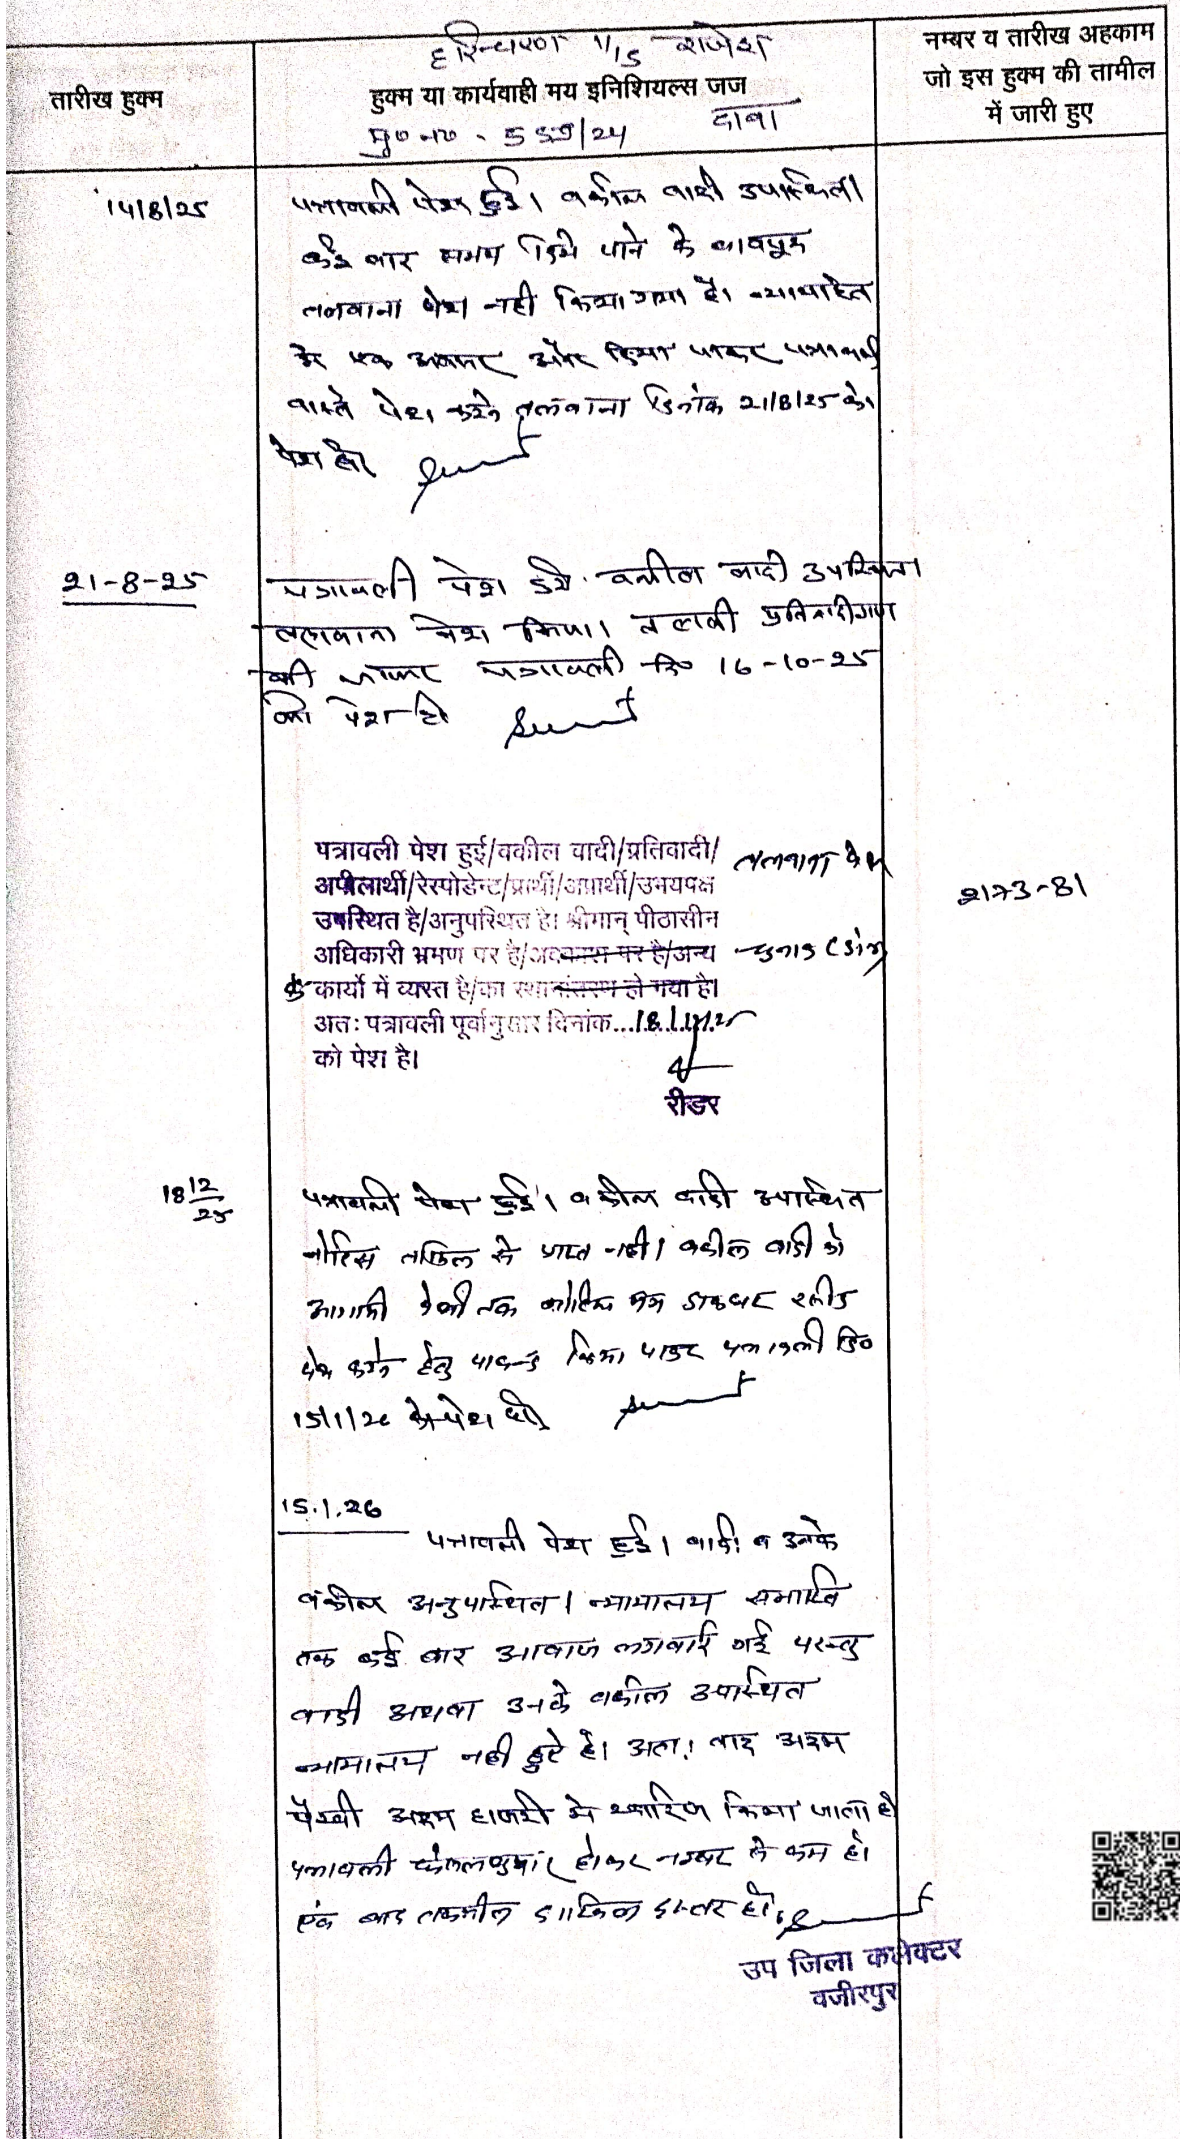 हरिचरण v/s राजेश
तारीख हुक्म
हुक्म या कार्यवाही मय इनिशियल्स जज
नम्बर व तारीख अहकाम
जो इस हुक्म की तामील
में जारी हुए
मु० न० - /24 दावा
14/8/25
पत्रावली पेश हुई। वकील वादी उपस्थित।
कई बार समय दिये जाने के बावजूद
तलवाना पेश नही किया गया है। न्यायहित
मे एक अवसर और दिया जाकर पत्रावली
वास्ते पेश करने तलवाना दिनांक 21/8/25 को
पेश हो
21-8-25
पत्रावली पेश हुयी वकील वादी उपस्थित।
तलवाना पेश किया। तलवी प्रतिवादीगण
की जाकर पत्रावली दि० 16-10-25
को पेश हो
पत्रावली पेश हुई/वकील वादी/प्रतिवादी/ तलवाना पेश
अपीलार्थी/रेस्पोडेन्ट/प्रार्थी/अप्रार्थी/उभयपक्ष
उपस्थित है/अनुपस्थित है। श्रीमान् पीठासीन
अधिकारी भ्रमण पर है/अवकाश पर है/अन्य
कार्यो में व्यस्त है/का स्थानांतरण हो गया है।
अतः पत्रावली पूर्वानुसार दिनांक...18/12/25
को पेश है।
रीडर
2173-81
18 12/25
पत्रावली पेश हुई। वकील वादी उपस्थित
नोटिस तामिल से प्राप्त नही। वकील वादी को
आगामी पेशी तक नोटिस मय डाकघर रसीद
पेश करने हेतु पाबन्द किया जाकर पत्रावली दि०
15/1/26 को पेश हो
15.1.26
पत्रावली पेश हुई। वादी व उनके
वकील अनुपस्थित। न्यायालय समाप्ति
तक कई बार आवाज लगवाई गई परन्तु
वादी अथवा उनके वकील उपस्थित
न्यायालय नही हुये है। अतः वाद अदम
पैरवी अदम हाजरी मे खारिज किया जाता है
पत्रावली फैसलशुमार होकर नम्बर से कम हो।
एवं बाद तकमील दाखिल दफ्तर हो।
उप जिला कलेक्टर
वजीरपुर